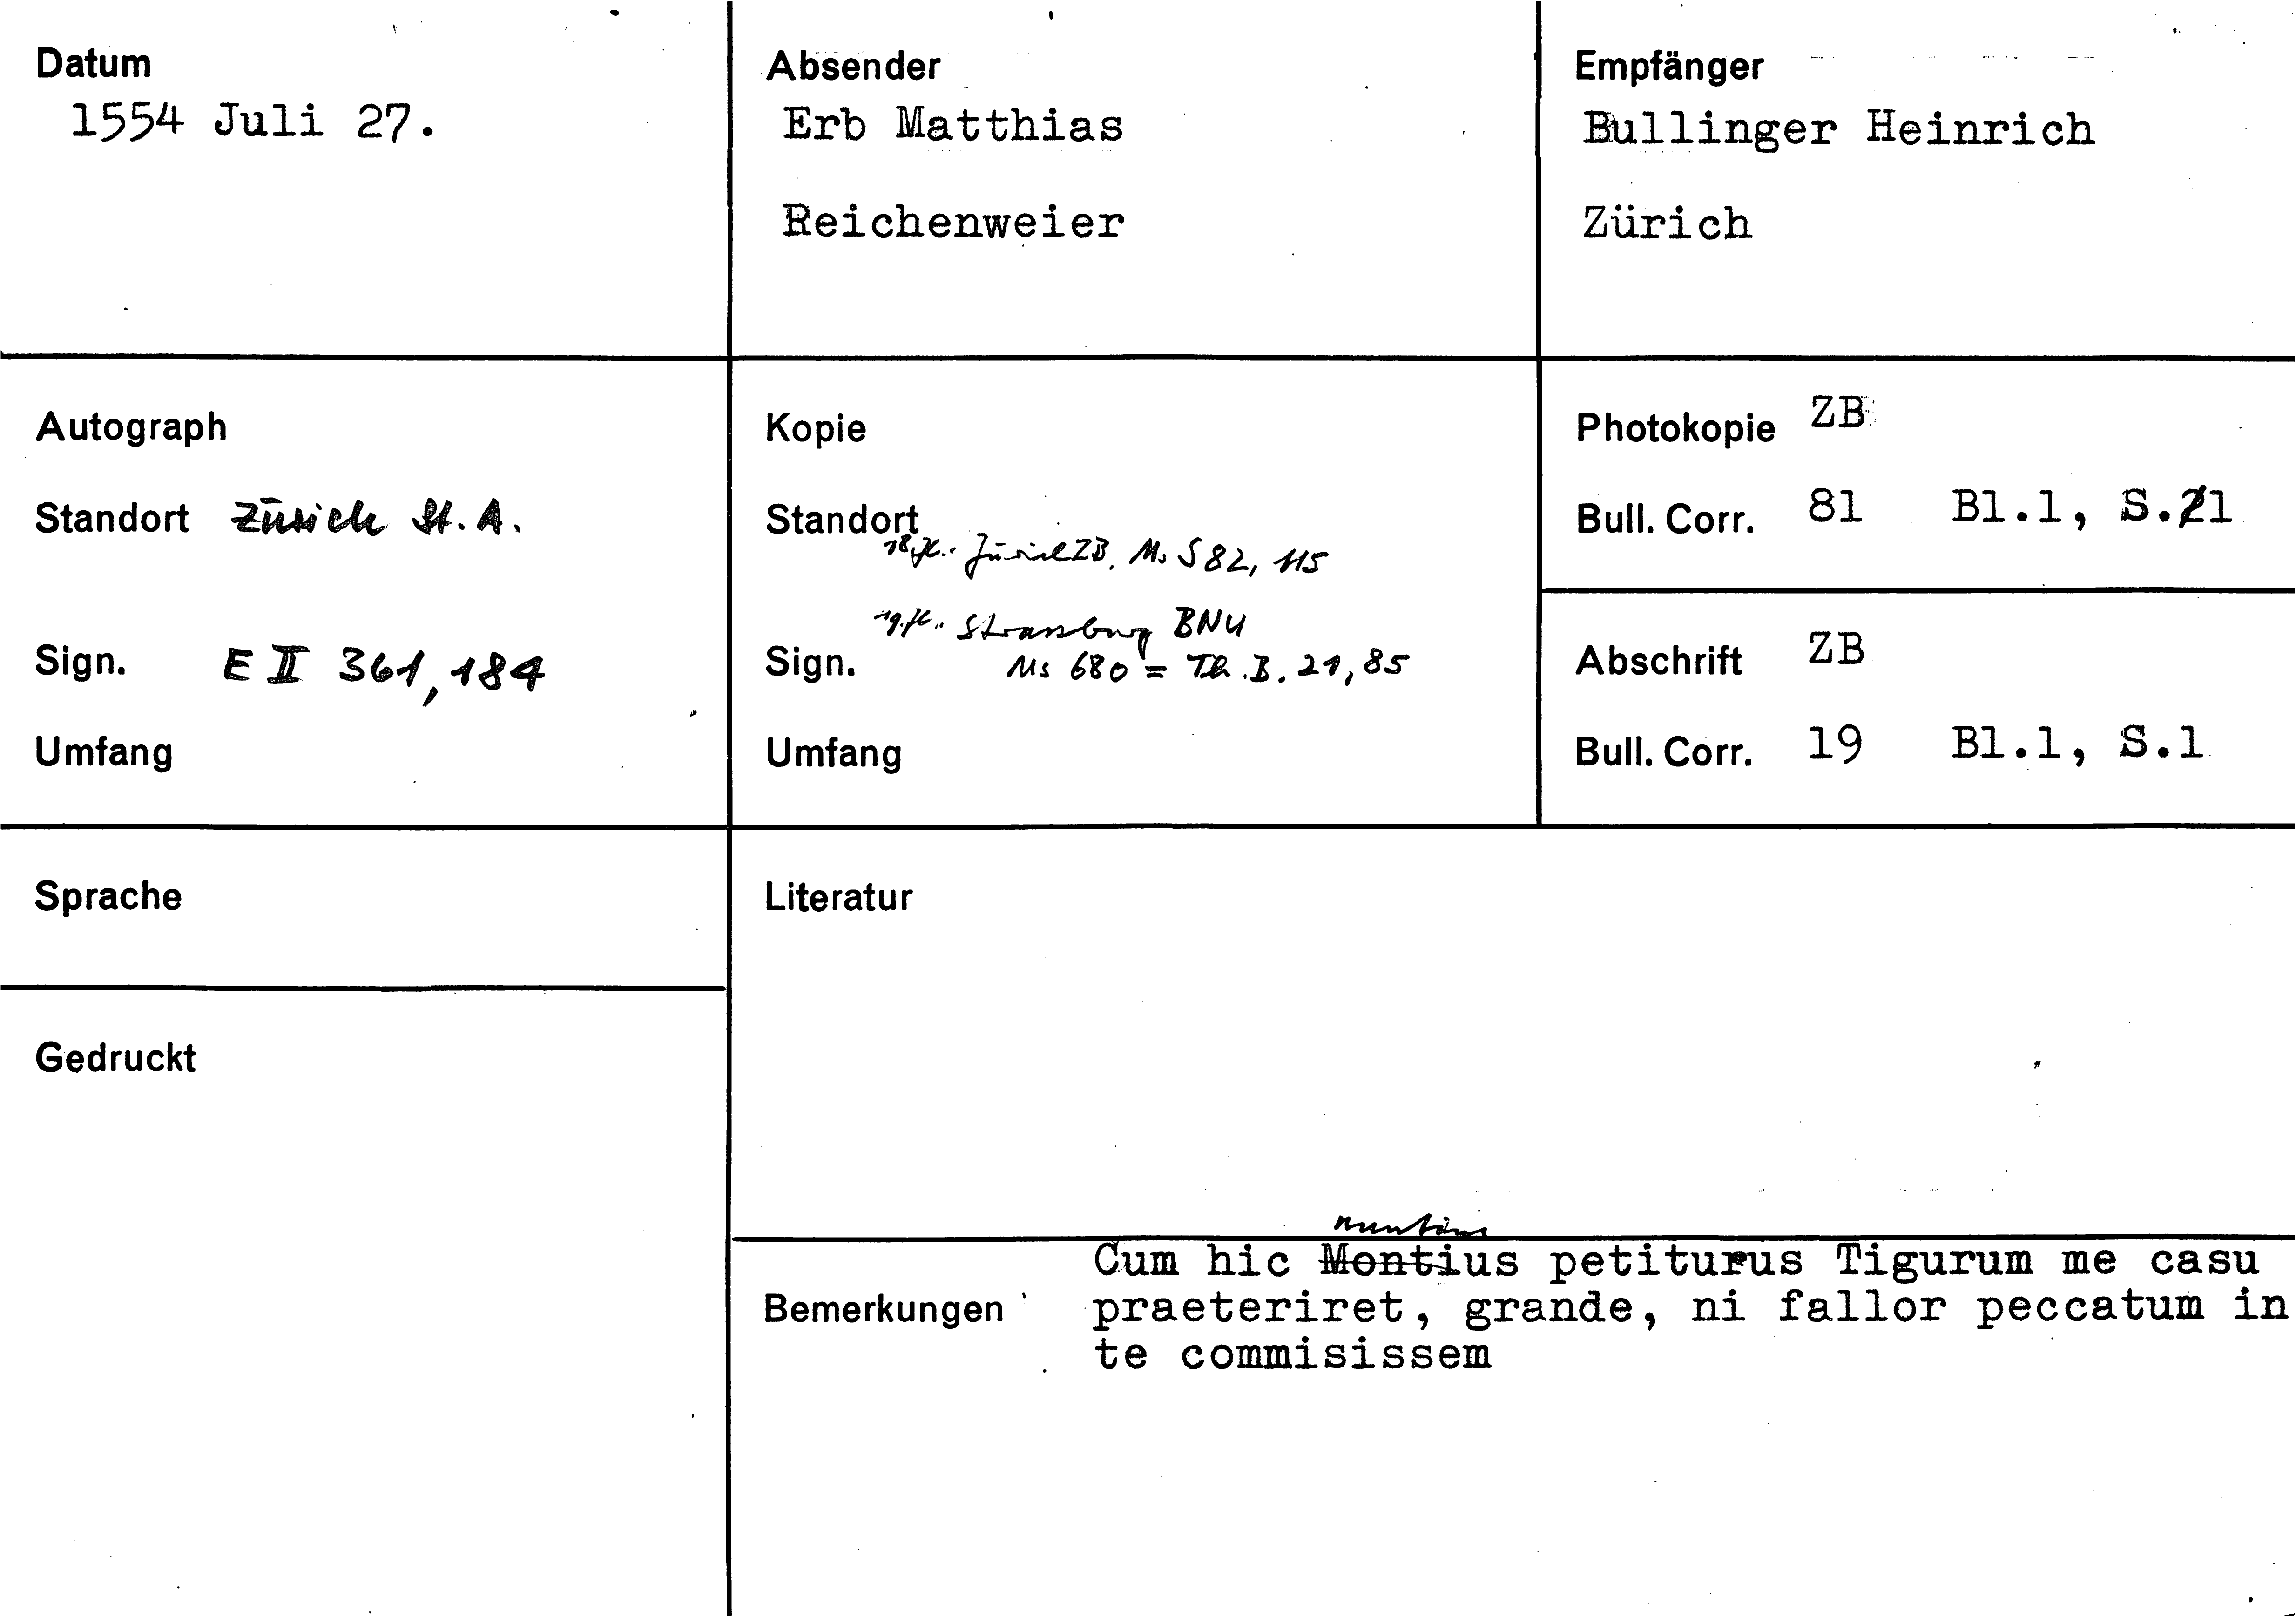 Datum
1554 Juli 27.
Absender
Erb Matthias
Reichenweier
Empfänger
Bullinger Heinrich
Zürich
Autograph
Standort Zürich St. A.
Sign. E II 361, 184
Umfang
Kopie
Standort
18. Jh.: Zürich ZB, Ms S 82, 115
19. Jh.: Strassburg BNU
Sign. Ms 680 = Th. B. 21, 85
Umfang
Photokopie ZB
Bull. Corr. 81 Bl.1, S.1
Abschrift ZB
Bull. Corr. 19 Bl.1, S.1
Sprache
Gedruckt
Literatur
nuntius
Cum hic Montius petiturus Tigurum me casu
Bemerkungen praeteriret, grande, ni fallor peccatum in
te commisissem